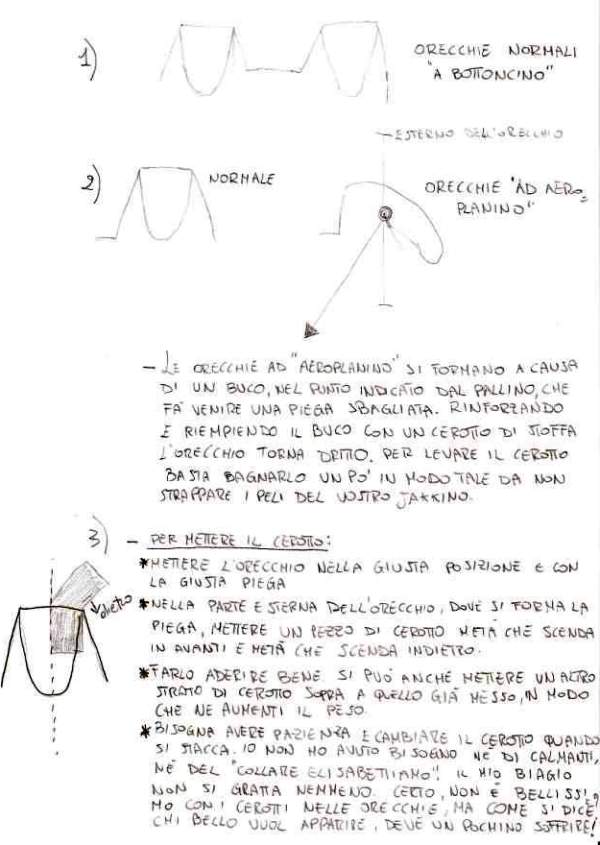 1)
ORECCHIE NORMALI
"A BOTTONCINO"
ESTERNO DELL'ORECCHIO
2)
NORMALE
ORECCHIE "AD AERO=
PLANINO"
- LE ORECCHIE AD "AEROPLANINO" SI FORMANO A CAUSA
DI UN BUCO, NEL PUNTO INDICATO DAL PALLINO, CHE
FA' VENIRE UNA PIEGA SBAGLIATA. RINFORZANDO
E RIEMPIENDO IL BUCO CON UN CEROTTO DI STOFFA
L'ORECCHIO TORNA DRITTO. PER LEVARE IL CEROTTO
BASTA BAGNARLO UN PO' IN MODO TALE DA NON
STRAPPARE I PELI DEL VOSTRO JAKKINO.
3)
- PER METTERE IL CEROTTO:
* METTERE L'ORECCHIO NELLA GIUSTA POSIZIONE E CON
LA GIUSTA PIEGA
dietro
* NELLA PARTE ESTERNA DELL'ORECCHIO, DOVE SI FORMA LA
PIEGA, METTERE UN PEZZO DI CEROTTO METÀ CHE SCENDA
IN AVANTI E METÀ CHE SCENDA INDIETRO.
* FARLO ADERIRE BENE. SI PUÒ ANCHE METTERE UN ALTRO
STRATO DI CEROTTO SOPRA A QUELLO GIÀ MESSO, IN MODO
CHE NE AUMENTI IL PESO.
* BISOGNA AVERE PAZIENZA E CAMBIARE IL CEROTTO QUANDO
SI STACCA. IO NON HO AVUTO BISOGNO NÉ DI CALMANTI,
NÉ DEL "COLLARE ELISABETTIAMO". IL MIO BIAGIO
NON SI GRATTA NEMMENO. CERTO, NON È BELLISSI=
MO CON I CEROTTI NELLE ORECCHIE, MA COME SI DICE
CHI BELLO VUOL APPARIRE, DEVE UN POCHINO SOFFRIRE!